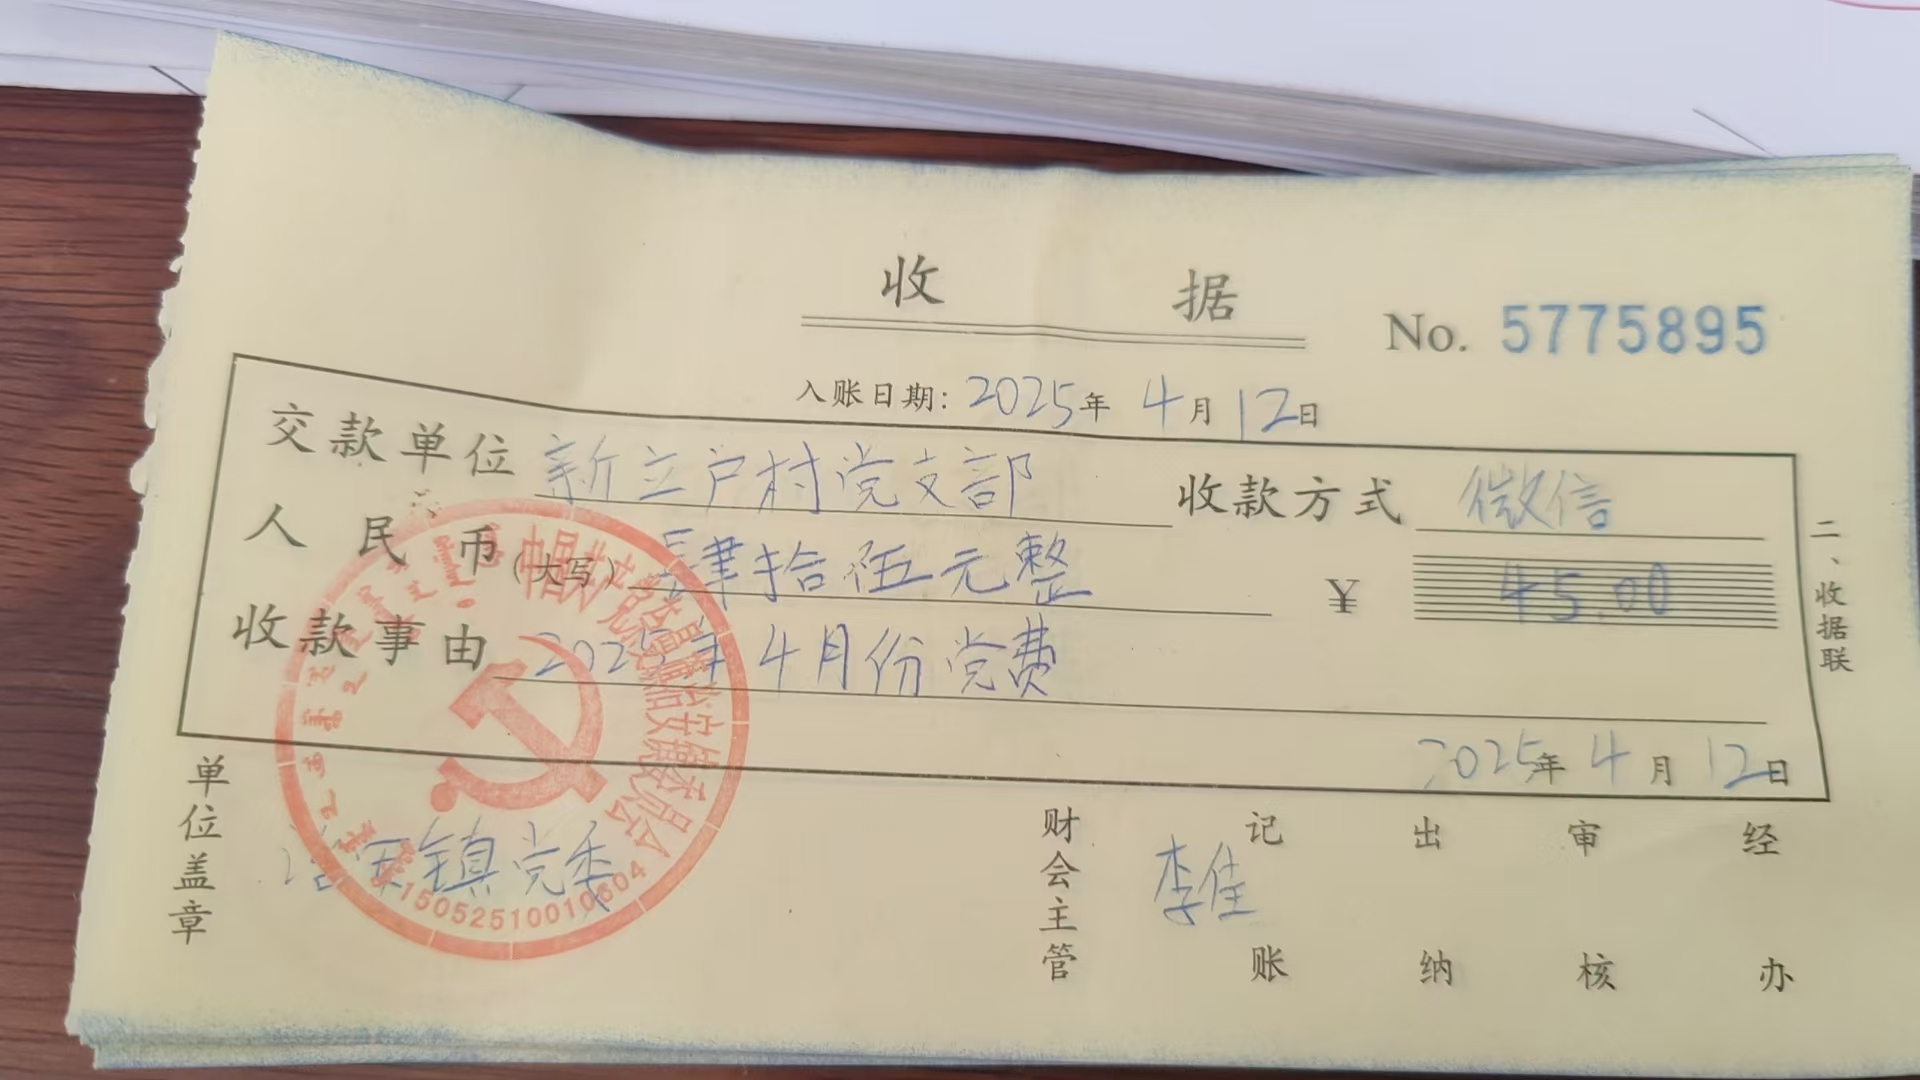 收 据
No. 5775895
入账日期: 2025年 4月 12日
交款单位 新立户村党支部 收款方式 微信
人民币(大写) 肆拾伍元整 ¥ 45.00
收款事由 2025年4月份党费
2025年 4月 12日
二、收据联
单位盖章 治安镇党委
财会主管 李佳 记账 出纳 审核 经办
15052510010604